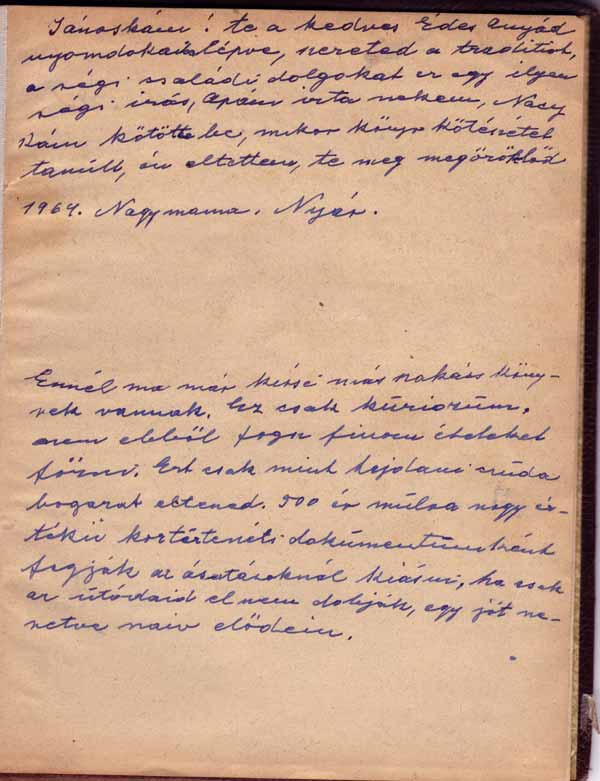 Jánoskám! te a kedves Édes Anyád
nyomdokaiba lépve, szereted a traditiot,
a régi családi dolgokat ez egy ilyen
régi irás, Apám irta nekem, Nacy
bám kötötte be, mikor könyv kötészetet
tanult, én eltettem, te meg megöröklöd
1964. Nagymama. Nyár.
Ennél ma már kissé más szakács köny-
vek vannak. Ez csak kúriozúm,
nem ebből fogsz finom ételeket
főzni. Ezt csak mint hajdani csúda
bogarat eltened. 500 év múlva nagy ér-
tékü kortörténeti dokúmentúmként
fogják az ásatásoknál kiásni, ha csak
az útódaid el nem dobják, egy jót ne-
vetve naiv elődein.